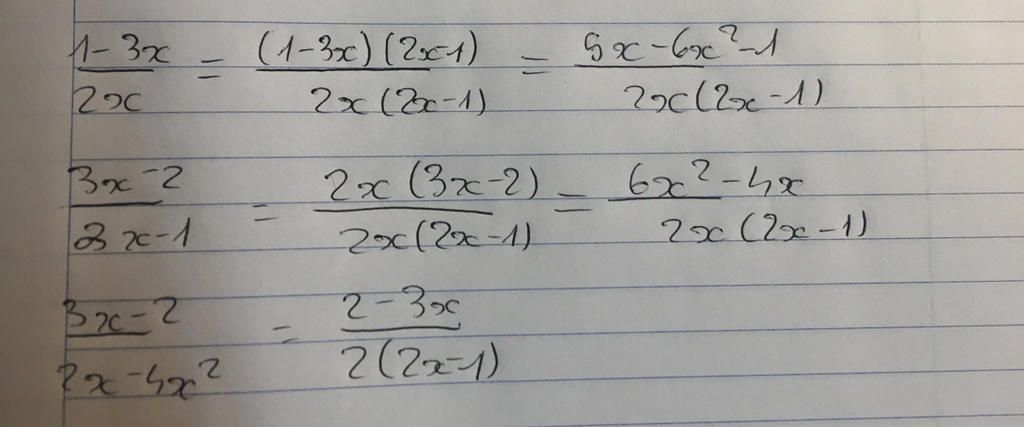 (1-3x)/(2x) = ((1-3x)(2x-1))/(2x(2x-1)) = (5x-6x²-1)/(2x(2x-1))
(3x-2)/(2x-1) = (2x(3x-2))/(2x(2x-1)) = (6x²-4x)/(2x(2x-1))
(3x-2)/(2x-4x²) = (2-3x)/(2(2x-1))